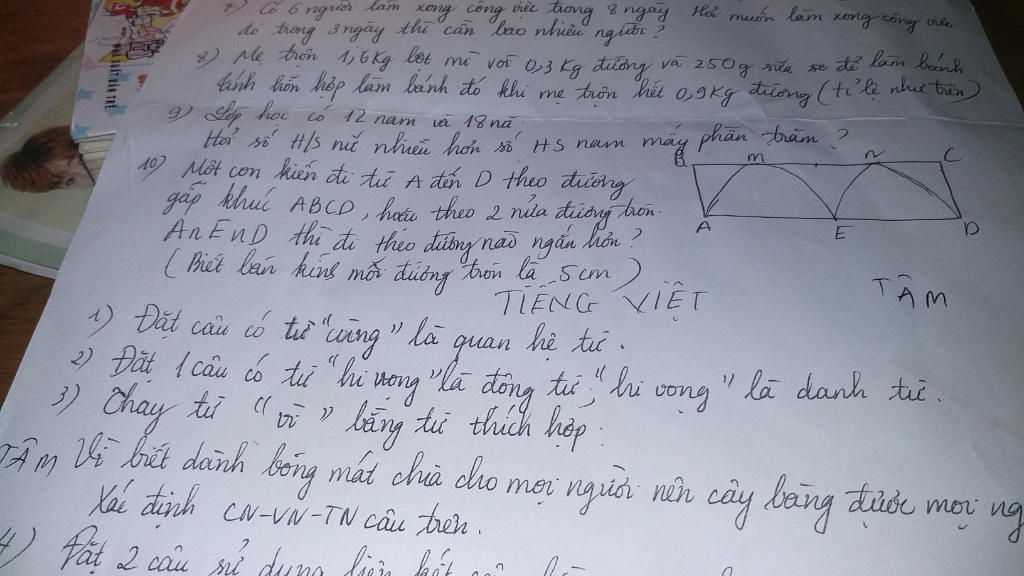 7) Có 6 người làm xong công việc trong 8 ngày. Hỏi muốn làm xong công việc
đó trong 3 ngày thì cần bao nhiêu người?
8) Mẹ trộn 1,6Kg bột mì với 0,3Kg đường và 250g sữa để làm bánh
tính hỗn hợp làm bánh đó khi mẹ trộn hết 0,9Kg đường (tỉ lệ như trên)
9) Lớp học có 12 nam và 18 nữ.
Hỏi số H/S nữ nhiều hơn số HS nam mấy phần trăm?
10) Một con kiến đi từ A đến D theo đường
gấp khúc ABCD, hoặc theo 2 nửa đường tròn.
AnEnD thì đi theo đường nào ngắn hơn?
(Biết bán kính mỗi đường tròn là 5cm)
B M N C
A E D
TIẾNG VIỆT
TÂM
1) Đặt câu có từ "cùng" là quan hệ từ.
2) Đặt 1 câu có từ "hi vọng" là động từ, "hi vọng" là danh từ.
3) Thay từ "vì" bằng từ thích hợp.
TÂM Vì biết dành bóng mát chia cho mọi người nên cây bàng được mọi ng
Xác định CN-VN-TN câu trên.
4) Đặt 2 câu sử dụng liên kết